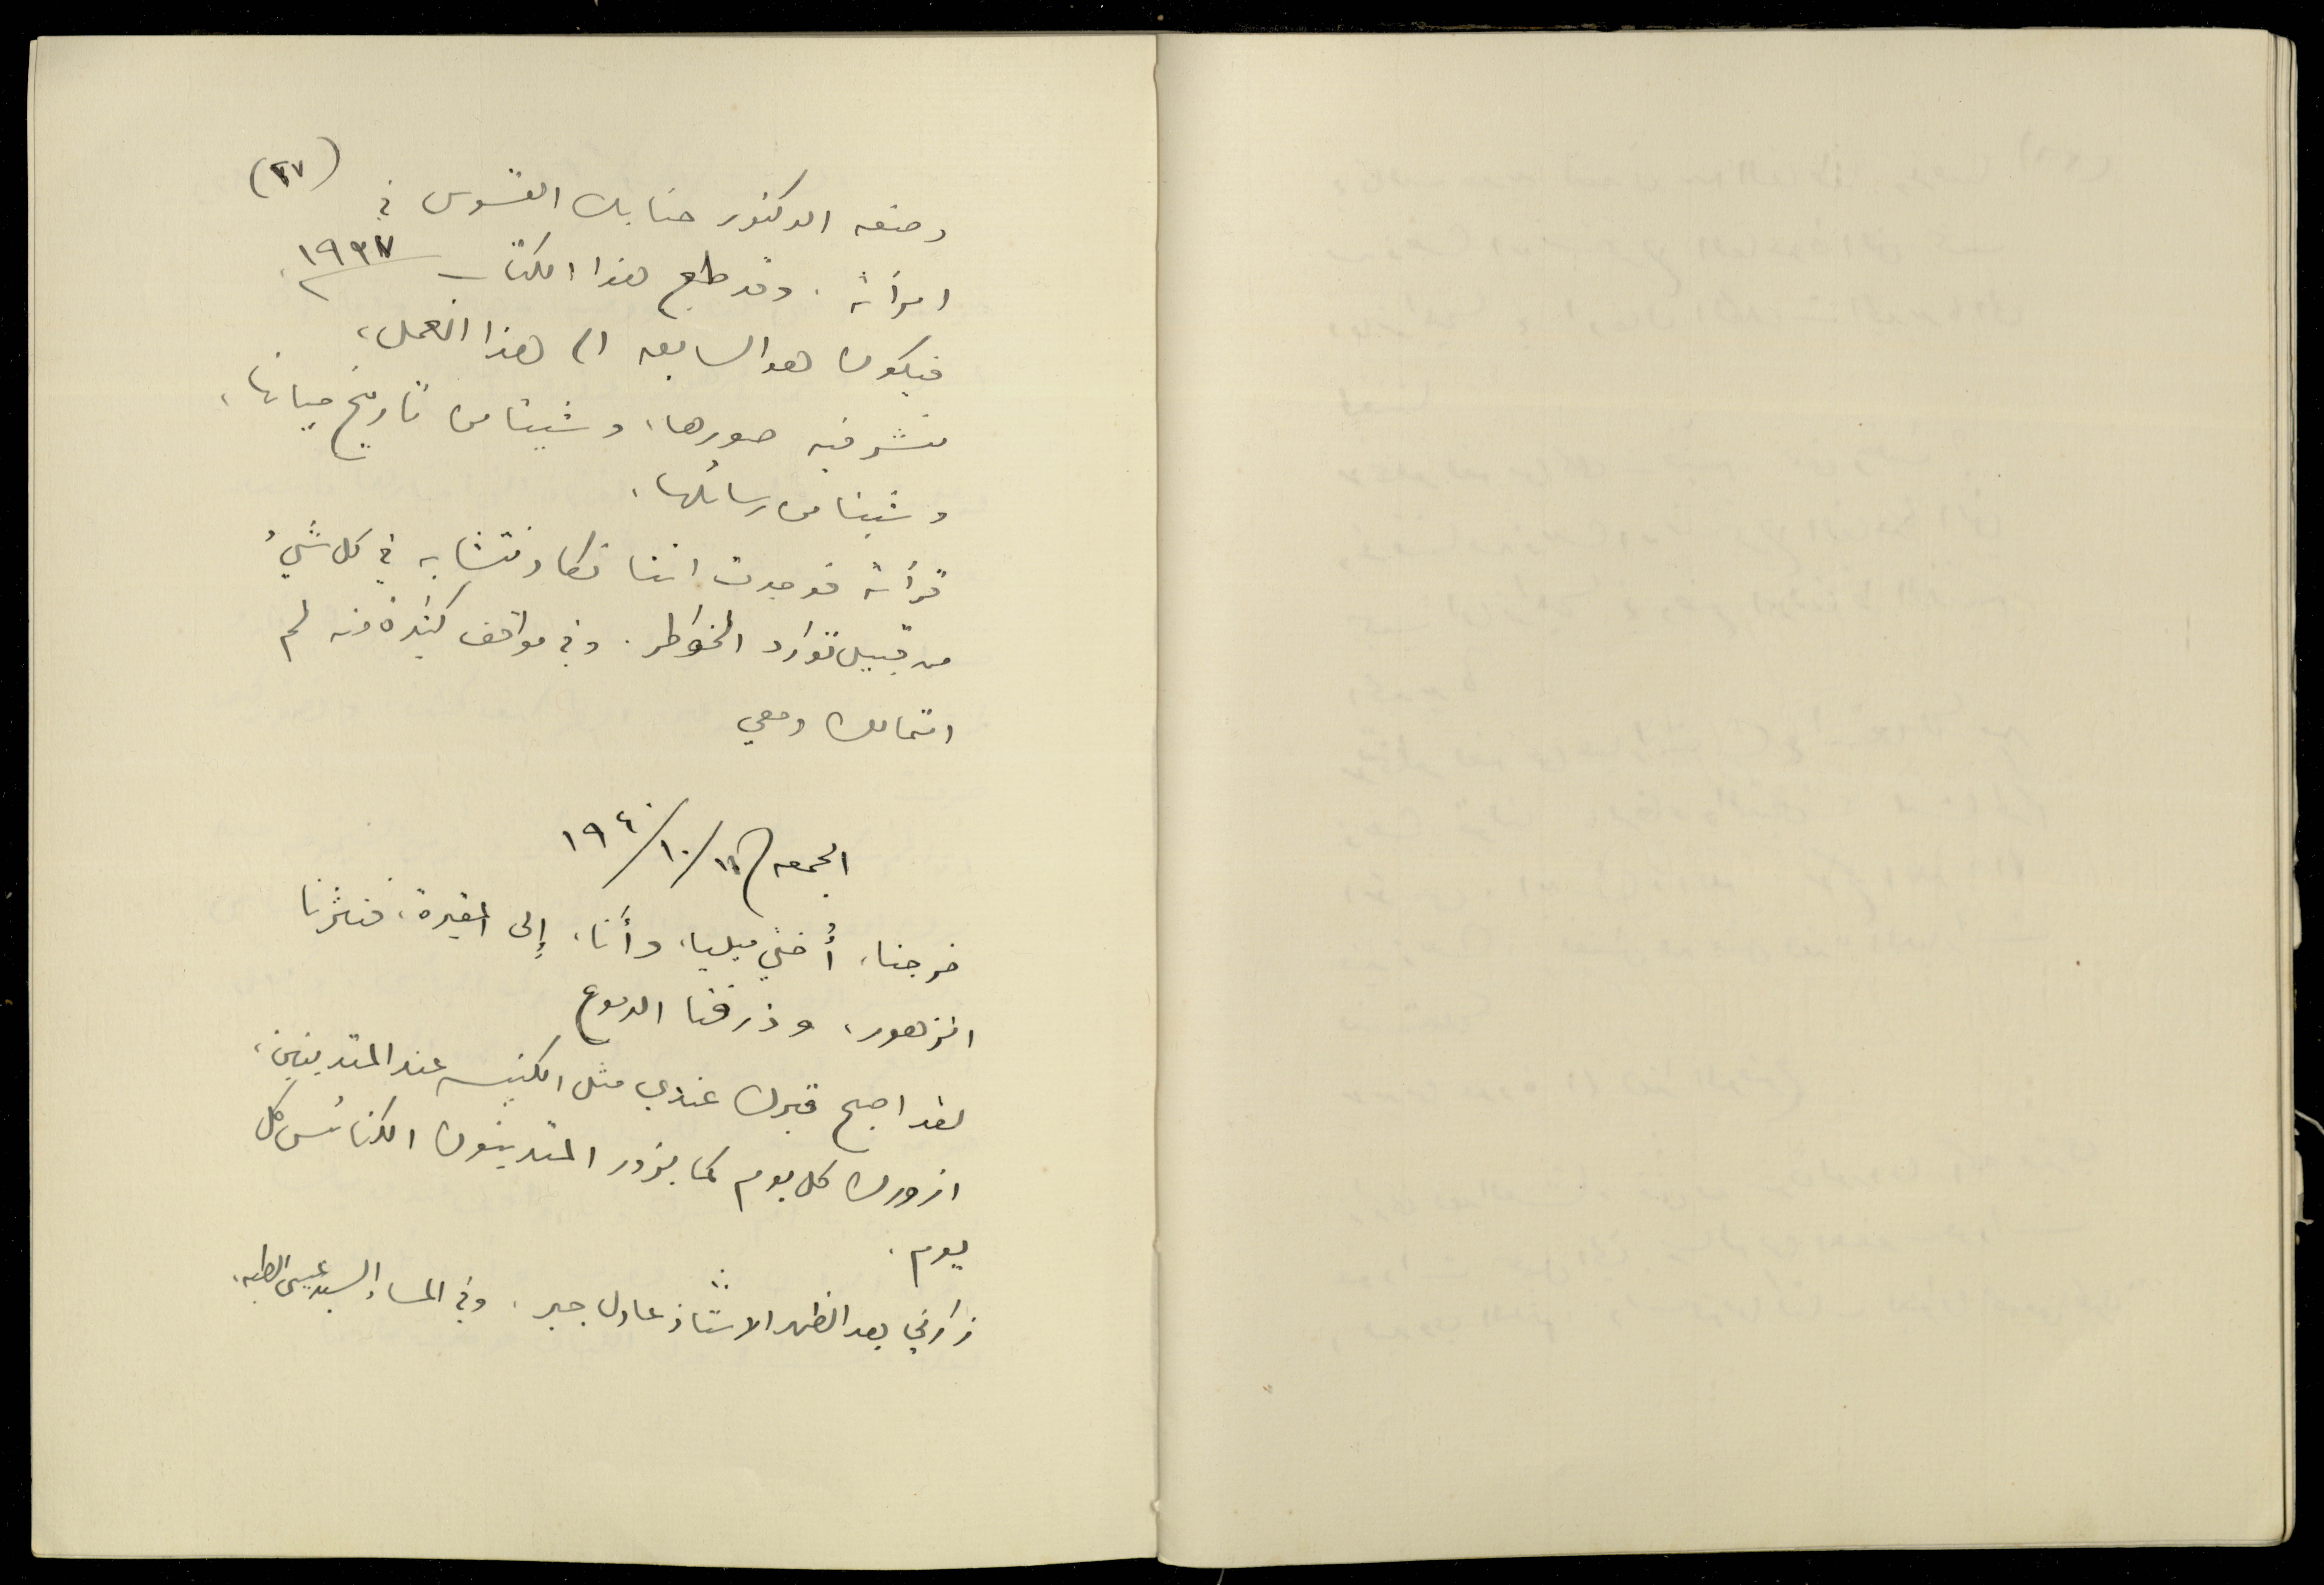 (٢٧)
وضعه الدكتور حنا بك القسوس في
امرأته . وقد طبع هذا الكتاب ١٩٣٧،
فيكون هو السابق الى هذا العمل،
نشر فيه صورها، وشيئا من تاريخ حياتها،
وشيئا من رسائلها.
قرأته فوجدت اننا نكاد نتشابه في كل شيءُ
من قبيل توارد الخواطر. وفي مواقف كثيرة منه لم
اتمالك دمعي
الجمعه ١٩٤٠/١٠/١١
خرجنا، أُختي ميليا، وأنا، إلى المقبرة، فنثرنا
الزهور، وذرفنا الدموع
لقد اصبح قبرك عندي مثل الكنيسه عند المتدينين،
ازورك كل يوم كما يزور المتدينون الكنائس كل
يوم .
زارني بعد الظهر الاستاذ عادل جبر . وفي المساء السيد عيسى الطبه.